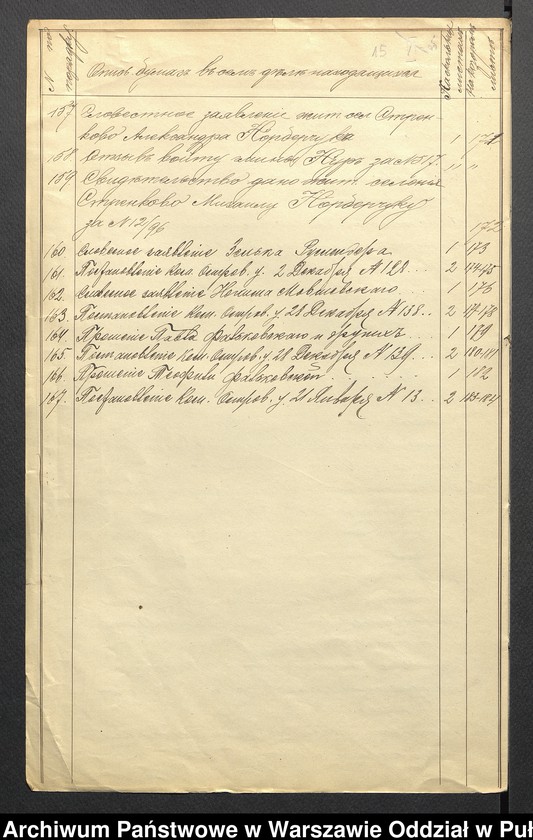 № по порядку
Опись бумагъ въ семъ дѣлѣ находящихся
На сколькихъ листахъ
На которомъ листѣ
15
157 Словестное заявленіе жит. сел. Стренково Александра Норберчука 1 171
158 Отзывъ войту гмины Нуръ за № 17. " "
159 Свидѣтельство дано жит. селенія
Стренково Михаилу Норберчуку
за № 12/96 172
160. Словесное заявленіе 1 173
161. Постановленіе Ком. Остров. у. 2 Декабря № 128 ... 2 174-175
162. Словесное заявленіе 1 176
163. Постановленіе Ком. Остров. у. 28 Декабря № 138 .. 2 177-178
164. Прошеніе Павла Фальковскаго и другихъ 1 179
165. Постановленіе Ком. Остров. у. 28 Декабря № 139 .. 2 180-181
166. Прошеніе Теофили Фальковской 1 182
167. Постановленіе Ком. Остров. у. 21 Января № 13 .. 2 183-184
Archiwum Państwowe w Warszawie Oddział w Puł